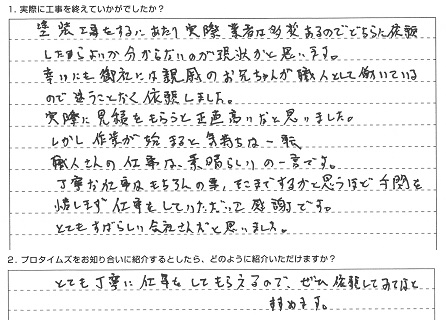 1. 実際に工事を終えていかがでしたか？
塗装工事をするにあたり実際業者は多数あるのでどちらに依頼
したらよいか分からないのが現状かと思います。
幸いにも御社には親戚のお兄ちゃんが職人として働いている
ので迷うことなく依頼しました。
実際に見積をもらうと正直高いなと思いました。
しかし作業が始まると気持ちは一転
職人さんの仕事は、素晴らしいの一言です。
丁寧な仕事はもちろんの事、そこまでするかと思うほど手間を
惜しまず仕事をしていただいて感謝です。
とてもすばらしい会社さんだと思いました。
2. プロタイムズをお知り合いに紹介するとしたら、どのように紹介いただけますか？
とても丁寧に仕事をしてもらえるので、ぜひ依頼してみてはと
すすめます。